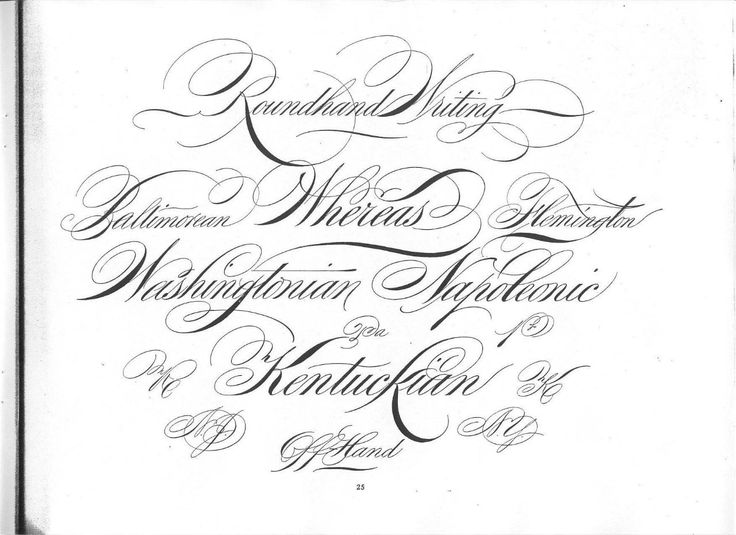 Roundhand Writing
Baltimorean Whereas Flemington
Washingtonian Napoleonic
Kentuckian
N.J. N.Y.
Off Hand
25